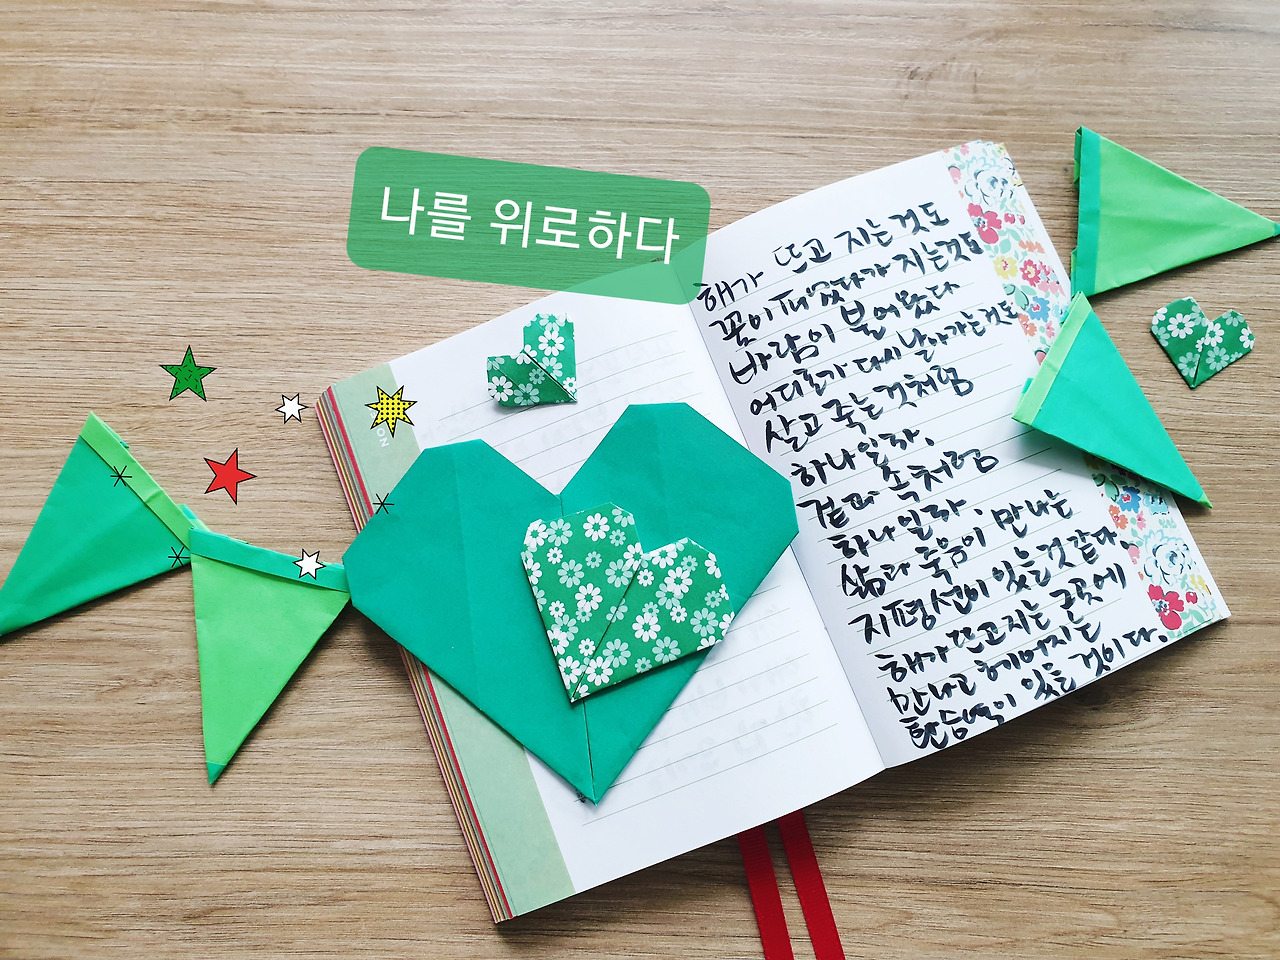 나를 위로하다
해가 뜨고 지는 것도
꽃이 피었다가 지는것도
바람이 불어왔다
어디론가 다시 날아가는것도
살고 죽는 것처럼
하나일라.
겉과 속처럼
하나일라.
삶과 죽음이 만나는
지평선이 있는것 같다.
해가 뜨고지는 그곳에
만나고 헤어지는
환승역이 있는 것이다.